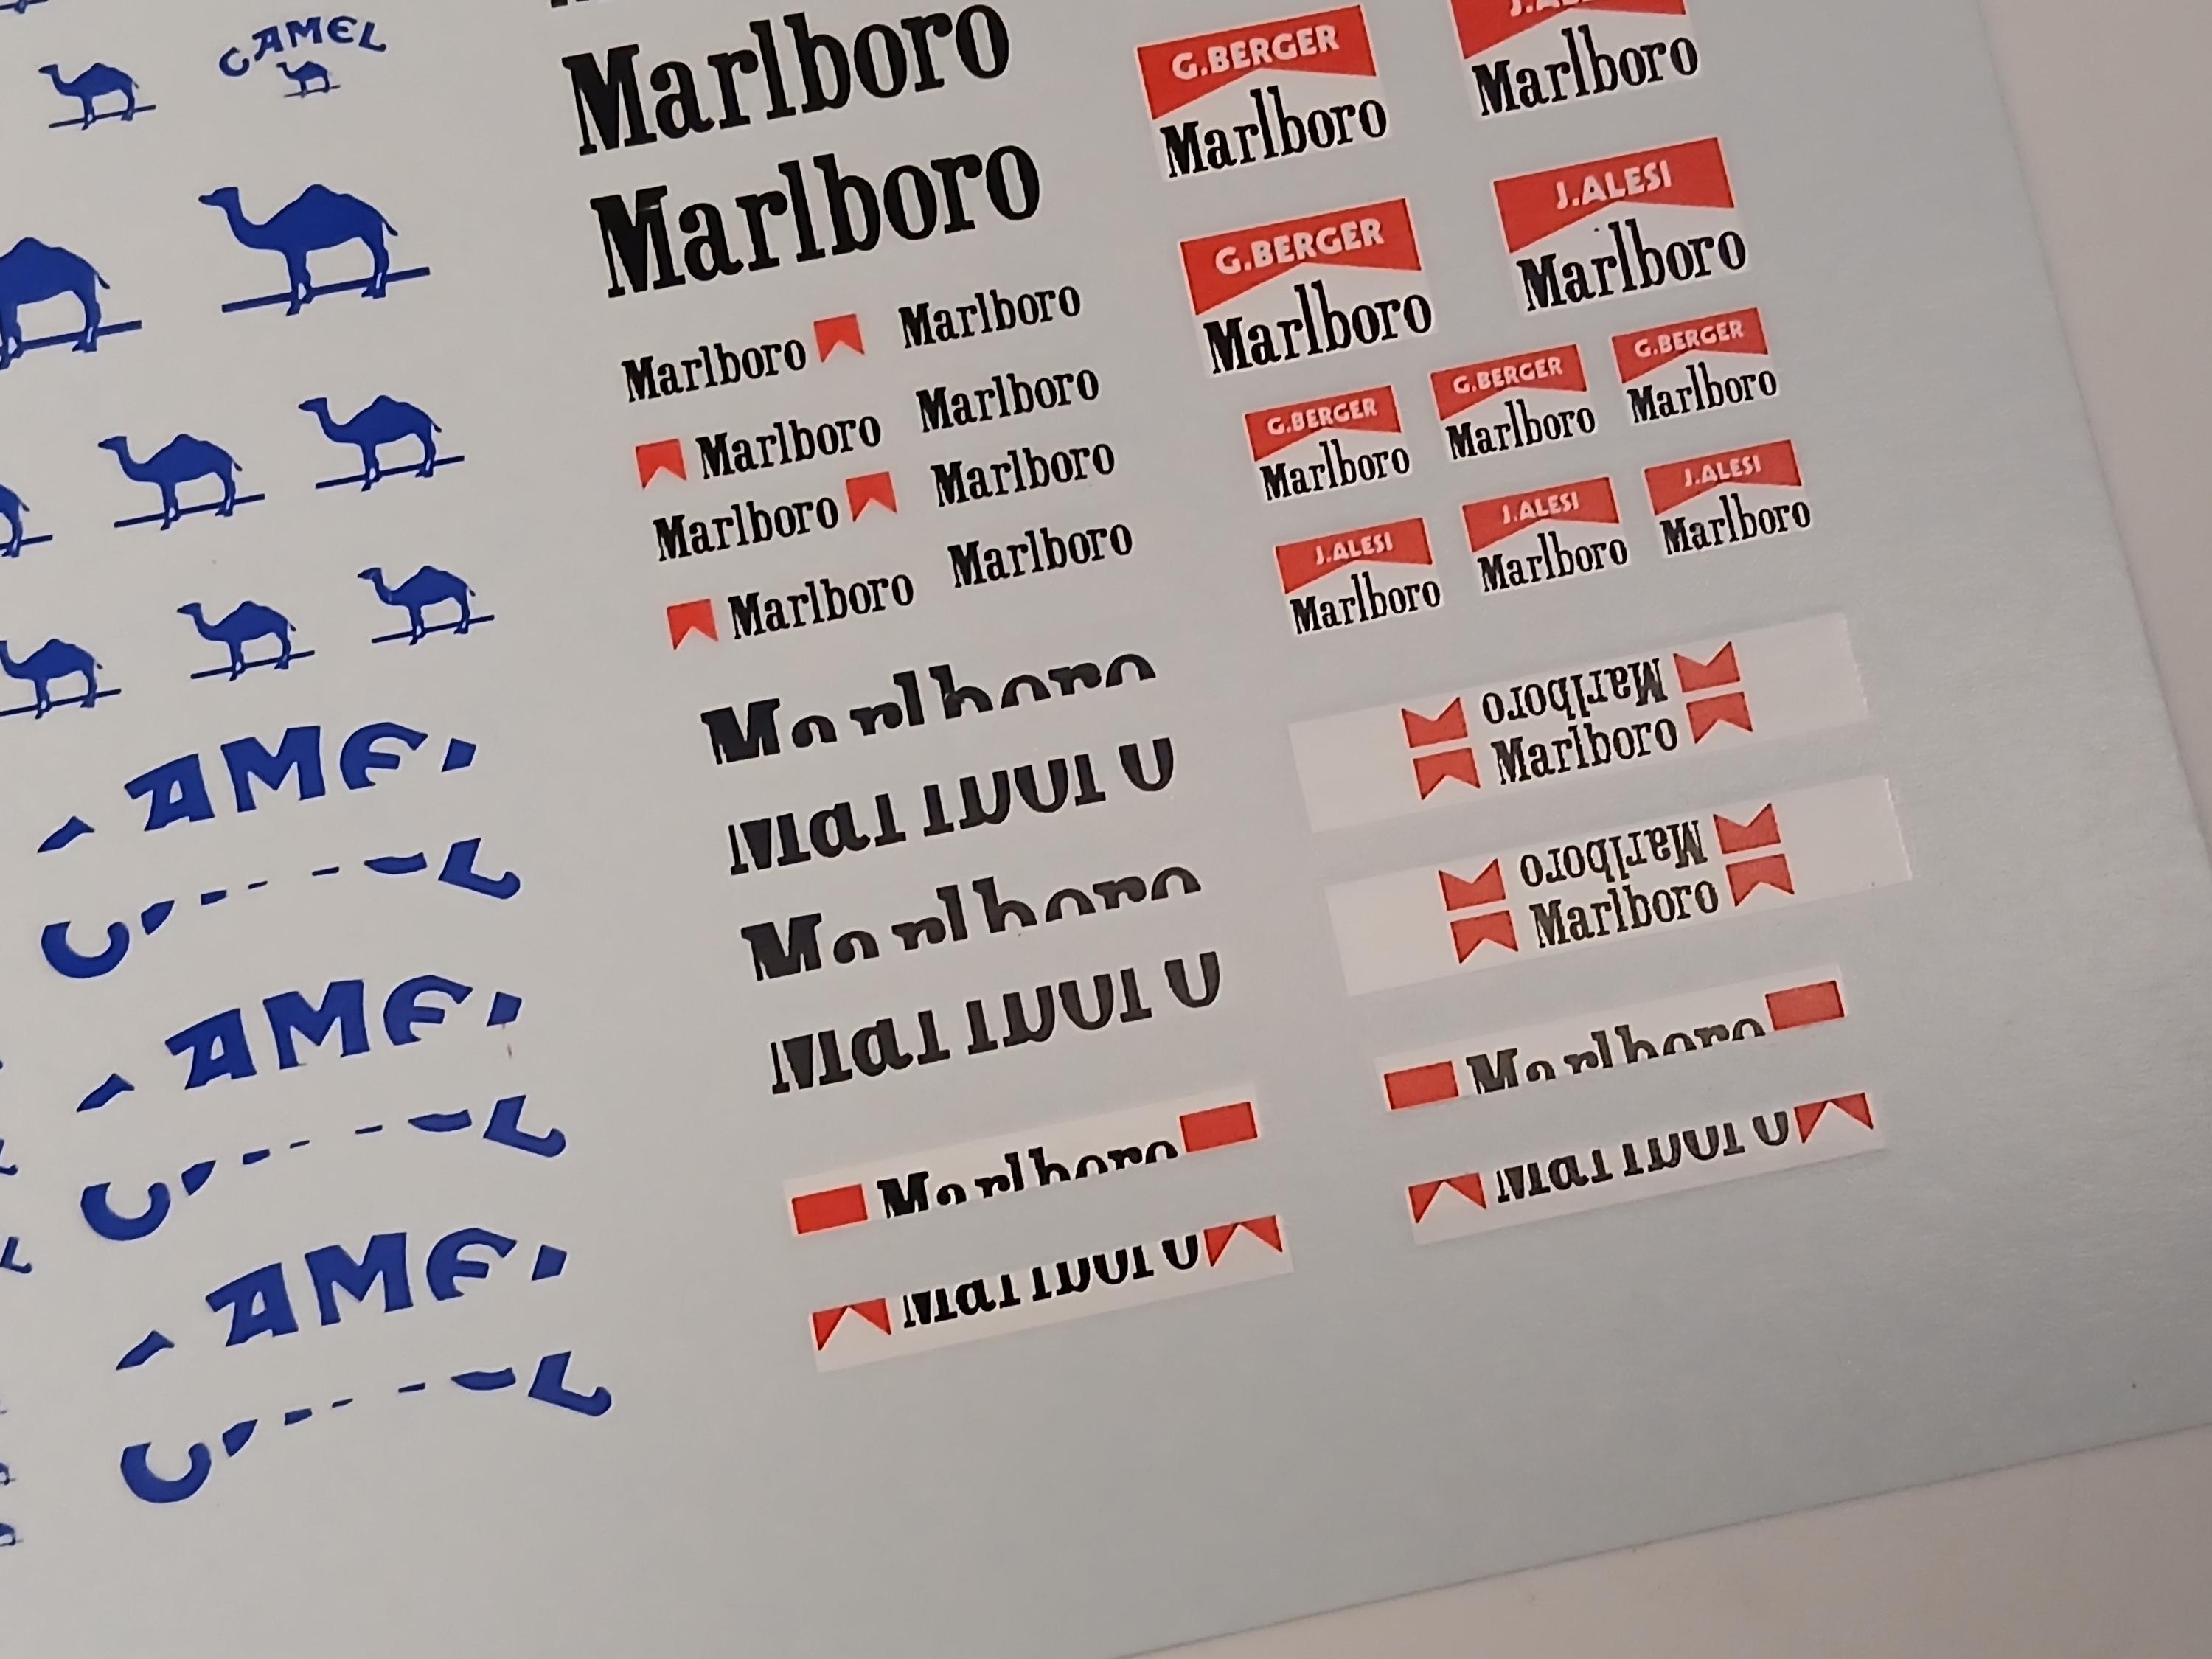 CAMEL
Marlboro
Marlboro
Marlboro Marlboro
Marlboro Marlboro
Marlboro Marlboro
Marlboro Marlboro
Marlboro
Marlboro
Marlboro
Marlboro
Marlboro
Marlboro
G.BERGER
Marlboro
Marlboro
G.BERGER
Marlboro
J.ALESI
Marlboro
G.BERGER
Marlboro
G.BERGER
Marlboro
G.BERGER
Marlboro
J.ALESI
Marlboro
J.ALESI
Marlboro
J.ALESI
Marlboro
Marlboro
Marlboro
Marlboro
Marlboro
Marlboro
Marlboro
AME
C L
AME
C L
AME
C L